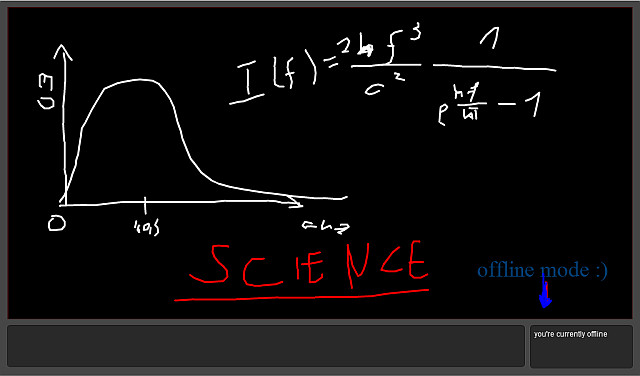 I(f) = 2hf³/c² 1/(e^(hf/kT) - 1)
0
SCIENCE
offline mode :)
you're currently offline